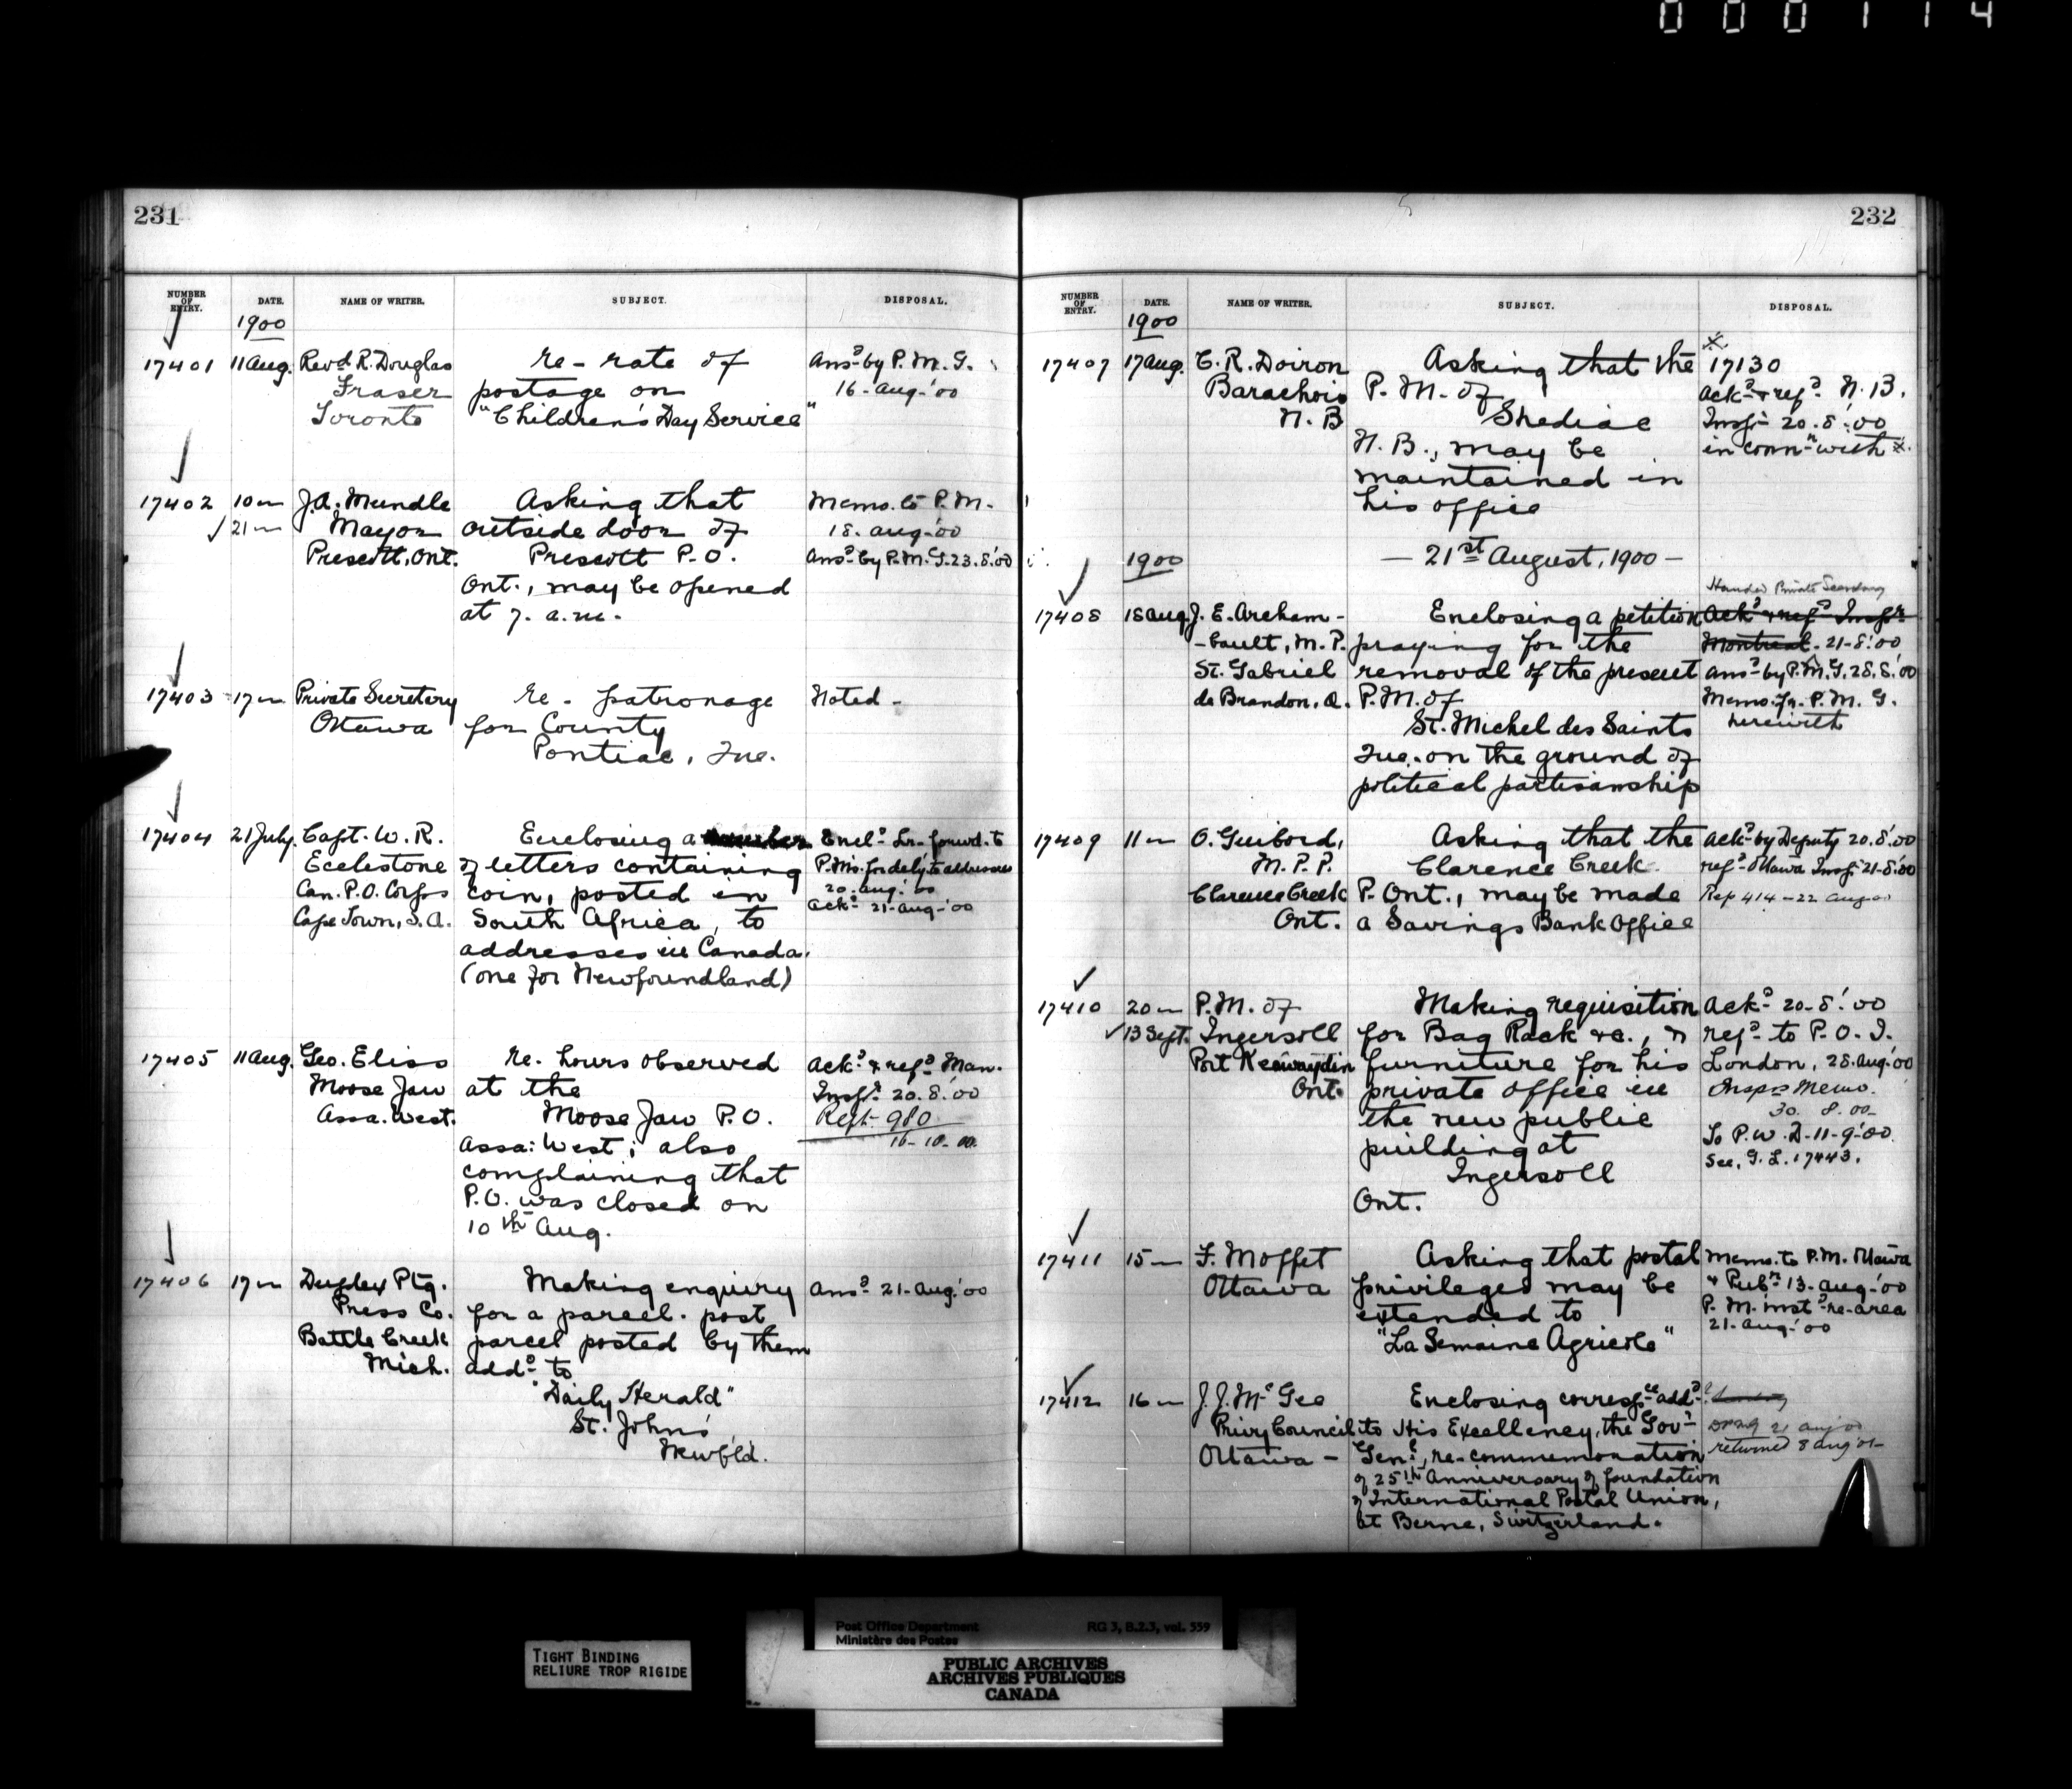 000114
231
NUMBER OF ENTRY. DATE. NAME OF WRITER. SUBJECT. DISPOSAL.
1900
17401 11 Aug. Revd R. Douglas re- rate of Ansd by P. M. G.
Fraser postage on 16-Aug-'00
Toronto "Children's Day Service"
17402 10 " J.A. Mundle Asking that Memo. to P.M.
21 " Mayor outside door of 18. Aug-'00
Prescott, Ont. Prescott P.O. Ansd by P.M.G. 23.8.'00
Ont., may be opened
at 7. a.m.
17403 17 " Private Secretary re- patronage Noted -
Ottawa for County
Pontiac, Que.
17404 21 July. Capt. W. R. Enclosing a number Encl. Lr. forwd. to
Ecclestone of letters containing P.Ms. for dely. to addresses
Can. P.O. Corps coin, posted in 20. Aug.'00
Cape Town, S.A. South Africa, to Ackd 21-Aug-'00
addresses in Canada.
(one for Newfoundland)
17405 11 Aug. Geo. Eliss re. hours observed Ackd & refd Man.
Moose Jaw at the Inspr 20.8.'00
Assa. West. Moose Jaw P.O. Rept- 980
Assa: West; also 16-10-00.
complaining that
P.O. was closed on
10th Aug.
17406 17 " Duplex Ptg. Making enquiry Ansd 21-Aug.'00
Press Co. for a parcel. post
Battle Creek parcel posted by them
Mich. addd to
"Daily Herald"
St. John's
Newfld.
232
NUMBER OF ENTRY. DATE. NAME OF WRITER. SUBJECT. DISPOSAL.
1900
17407 17 Aug. C. R. Doiron Asking that the 17130
Barachois P. M. of Ackd & refd N. B.
N. B Shediac Inspr 20.8.'00
N. B., may be in connn with x.
maintained in
his office
1900 - 21st August, 1900 -
Handed Private Secretary
17408 18 Aug J. E. Archam- Enclosing a petition Ackd & refd Inspr
-bault, M. P. praying for the Montreal. 21-8.'00
St. Gabriel removal of the present Ansd by P.M.G. 28.8.'00
de Brandon, Q. P.M. of Memo. fr. P. M. G.
St. Michel des Saints herewith
Que. on the ground of
political partisanship
17409 11 " O. Guibord, Asking that the Ackd by Deputy 20.8.'00
M. P. P. Clarence Creek refd Ottawa Inspr 21-8.'00
Clarence Creek P. Ont., may be made Rep 414-22 Aug 00
Ont. a Savings Bank Office
17410 20 " P.M. of Making requisition Ackd 20-8.'00
13 Sept. Ingersoll for Bag Rack &c., & refd to P. O. I.
Port Keewaydin furniture for his London, 28. Aug.'00
Ont. private office in Inspr Memo.
the new public 30. 8. 00-
building at To P.W.D-11-9-'00.
Ingersoll See, G. L. 17443.
Ont.
17411 15 " F. Moffet Asking that postal Memo. to P.M. Ottawa
Ottawa privileges may be & Pubr 13-Aug-'00
extended to P. M. instd re-area
"La Semaine Agricole" 21-Aug-'00
17412 16 " J. J. McGee Enclosing correspce addd
Privy Council to His Excellency, the Govr 21 Aug 00
Ottawa - Genl, re-commemoration returned 8 Aug '01-
of 25th Anniversary of foundation
of International Postal Union,
at Berne, Switzerland.
Post Office Department RG 3, B.2.3, vol. 559
Ministère des Postes
TIGHT BINDING
RELIURE TROP RIGIDE
PUBLIC ARCHIVES
ARCHIVES PUBLIQUES
CANADA